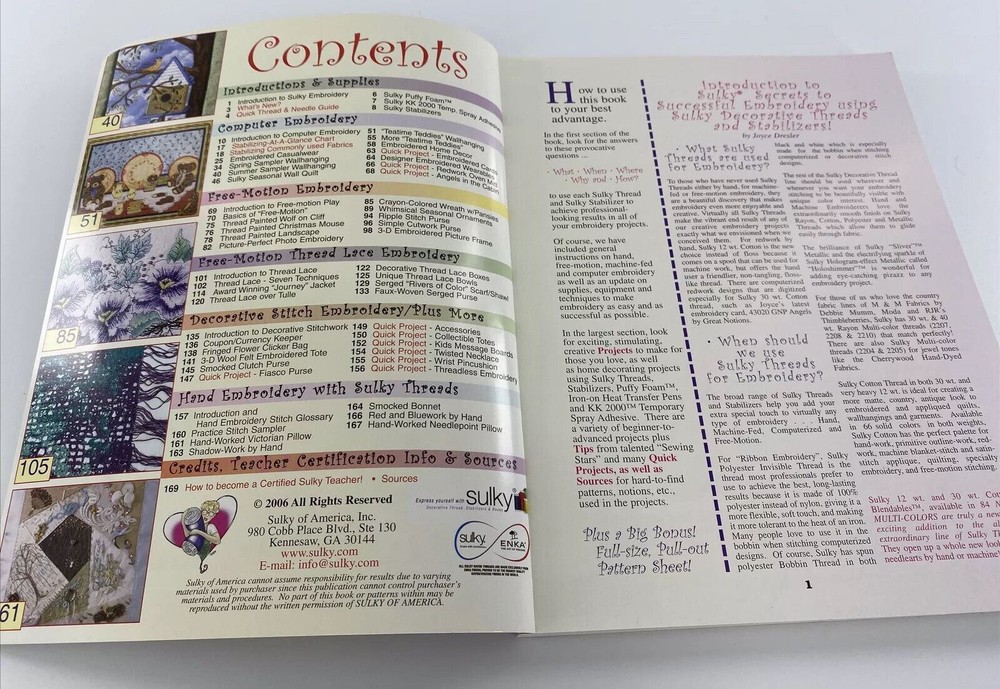 Contents
Introductions & Supplies
1 Introduction to Sulky Embroidery
3 What's New?
4 Quick Thread & Needle Guide
6 Sulky Puffy Foam™
7 Sulky KK 2000 Temp. Spray Adhesive
8 Sulky Stabilizers
Computer Embroidery
10 Introduction to Computer Embroidery
17 Stabilizing-At-A-Glance Chart
18 Stabilizing Commonly used Fabrics
25 Embroidered Casualwear
34 Spring Sampler Wallhanging
40 Summer Sampler Wallhanging
46 Sulky Seasonal Wall Quilt
51 "Teatime Teddies" Wallhanging
55 More "Teatime Teddies"
58 Embroidered Home Decor
63 Quick Project - Embroidered Cards
64 Designer Embroidered Wearables
66 Quick Project - Redwork Oven Mitt
68 Quick Project - Angels in the Cabin
Free-Motion Embroidery
69 Introduction to Free-motion Play
70 Basics of "Free-Motion"
75 Thread Painted Wolf on Cliff
76 Thread Painted Christmas Mouse
78 Thread Painted Landscape
82 Picture-Perfect Photo Embroidery
85 Crayon-Colored Wreath w/Pansies
89 Whimsical Seasonal Ornaments
94 Ripple Stitch Purse
96 Simple Cutwork Purse
98 3-D Embroidered Picture Frame
Free-Motion Thread Lace Embroidery
101 Introduction to Thread Lace
102 Thread Lace - Seven Techniques
114 Award Winning "Journey" Jacket
120 Thread Lace over Tulle
122 Decorative Thread Lace Boxes
125 Unique Thread Lace Bowls
129 Serged "Rivers of Color" Scarf/Shawl
133 Faux-Woven Serged Purse
Decorative Stitch Embroidery/Plus More
135 Introduction to Decorative Stitchwork
136 Coupon/Currency Keeper
138 Fringed Flower Clicker Bag
141 3-D Wool Felt Embroidered Tote
145 Smocked Clutch Purse
147 Quick Project - Fiasco Purse
149 Quick Project - Accessories
150 Quick Project - Collectible Totes
152 Quick Project - Kids Message Boards
154 Quick Project - Twisted Necklace
155 Quick Project - Wrist Pincushion
156 Quick Project - Threadless Embroidery
Hand Embroidery with Sulky Threads
157 Introduction and
Hand Embroidery Stitch Glossary
160 Practice Stitch Sampler
161 Hand-Worked Victorian Pillow
163 Shadow-Work by Hand
164 Smocked Bonnet
166 Red and Bluework by Hand
167 Hand-Worked Needlepoint Pillow
Credits, Teacher Certification Info & Sources
169 How to become a Certified Sulky Teacher! • Sources
© 2006 All Rights Reserved
Sulky of America, Inc.
980 Cobb Place Blvd., Ste 130
Kennesaw, GA 30144
www.sulky.com
E-mail: info@sulky.com
Express yourself with Sulky
sulky
ENKA
Sulky of America cannot assume responsibility for results due to varying
materials used by purchaser since this publication cannot control purchaser's
materials and procedures. No part of this book or patterns within may be
reproduced without the written permission of SULKY OF AMERICA.
40
51
85
105
61
How to use
this book
to your best
advantage.
In the first section of the
book, look for the answers
to these provocative
questions ...
• What • When • Where
• Why and • How?
to use each Sulky Thread
and Sulky Stabilizer to
achieve professional-
looking results in all of
your embroidery projects.
Of course, we have
included general
instructions on hand,
free-motion, machine-fed
and computer embroidery
as well as an update on
supplies, equipment and
techniques to make
embroidery as easy and as
successful as possible.
In the largest section, look
for exciting, stimulating,
creative Projects to make for
those you love, as well
as home decorating projects
using Sulky Threads,
Stabilizers, Puffy Foam™,
Iron-on Heat Transfer Pens
and KK 2000™ Temporary
Spray Adhesive. There are
a variety of beginner-to-
advanced projects plus
Tips from talented "Sewing
Stars" and many Quick
Projects, as well as
Sources for hard-to-find
patterns, notions, etc.,
used in the projects.
Plus a Big Bonus!
Full-size, Pull-out
Pattern Sheet!
Introduction to
Sulky® Secrets to
Successful Embroidery using
Sulky Decorative Threads
and Stabilizers!
by Joyce Drexler
• What Sulky
Threads are used
for Embroidery?
To those who have never used Sulky
Threads either by hand, for machine-
fed or free-motion embroidery, they
are a beautiful discovery that makes
embroidery even more enjoyable and
creative. Virtually all Sulky Threads
make the vibrant end result of any of
our creative embroidery projects
exactly what we envisioned when we
conceived them. For redwork by
hand, Sulky 12 wt. Cotton is the new
choice instead of floss because it
comes on a spool that can be used for
machine work, but offers the hand
user a friendlier, non-tangling, floss-
like thread. There are computerized
redwork designs that are digitized
especially for Sulky 30 wt. Cotton
thread, such as Joyce's latest
embroidery card, 43020 GNP Angels
by Great Notions.
• When should
we use
Sulky Threads
for Embroidery?
The broad range of Sulky Threads
and Stabilizers help you add your
extra special touch to virtually any
type of embroidery . . . Hand,
Machine-Fed, Computerized and
Free-Motion.
For "Ribbon Embroidery", Sulky
Polyester Invisible Thread is the
thread most professionals prefer to
use to achieve the best, long-lasting
results because it is made of 100%
polyester instead of nylon, giving it a
more flexible, soft touch, and making
it more tolerant to the heat of an iron.
Many people love to use it in the
bobbin when stitching computerized
designs. Of course, Sulky has spun
polyester Bobbin Thread in both
black and white which is especially
made for the bobbin when stitching
computerized or decorative stitch
designs.
The rest of the Sulky Decorative Thread
line should be used wherever and
whenever you want your embroidery
stitching to be beautifully visible with
unique color interest. Hand and
Machine Embroiderers love the
extraordinarily smooth finish on Sulky
Rayon, Cotton, Polyester and Metallic
Threads which allow them to glide
easily through fabric.
The brilliance of Sulky "Sliver"™
Metallic and the electrifying sparkle of
Sulky Hologram-effect Metallic called
"Holoshimmer"™ is wonderful for
adding eye-catching pizazz to any
embroidery project.
For those of us who love the country
fabric lines of M & M Fabrics by
Debbie Mumm, Moda and RJR's
Thimbleberries, Sulky has 30 wt. & 40
wt. Rayon Multi-color threads (2207,
2208 & 2210) that match perfectly!
There are also Sulky Multi-color
threads (2204 & 2205) for jewel tones
like the Cherrywood Hand-Dyed
Fabrics.
Sulky Cotton Thread in both 30 wt. and
very heavy 12 wt. is ideal for creating a
more matte, country, antique look to
embroidered and appliqued quilts,
wallhangings and garments. Available
in 66 solid colors in both weights,
Sulky Cotton has the perfect palette for
hand-work, primitive outline-work, red-
work, machine blanket-stitch and satin-
stitch applique, quilting, specialty
embroidery, and free-motion stitching.
Sulky 12 wt. and 30 wt. Cotton
Blendables™, available in 84
MULTI-COLORS are truly a new
exciting addition to the
extraordinary line of Sulky
They open up a whole new look
needlearts by hand or machine
1